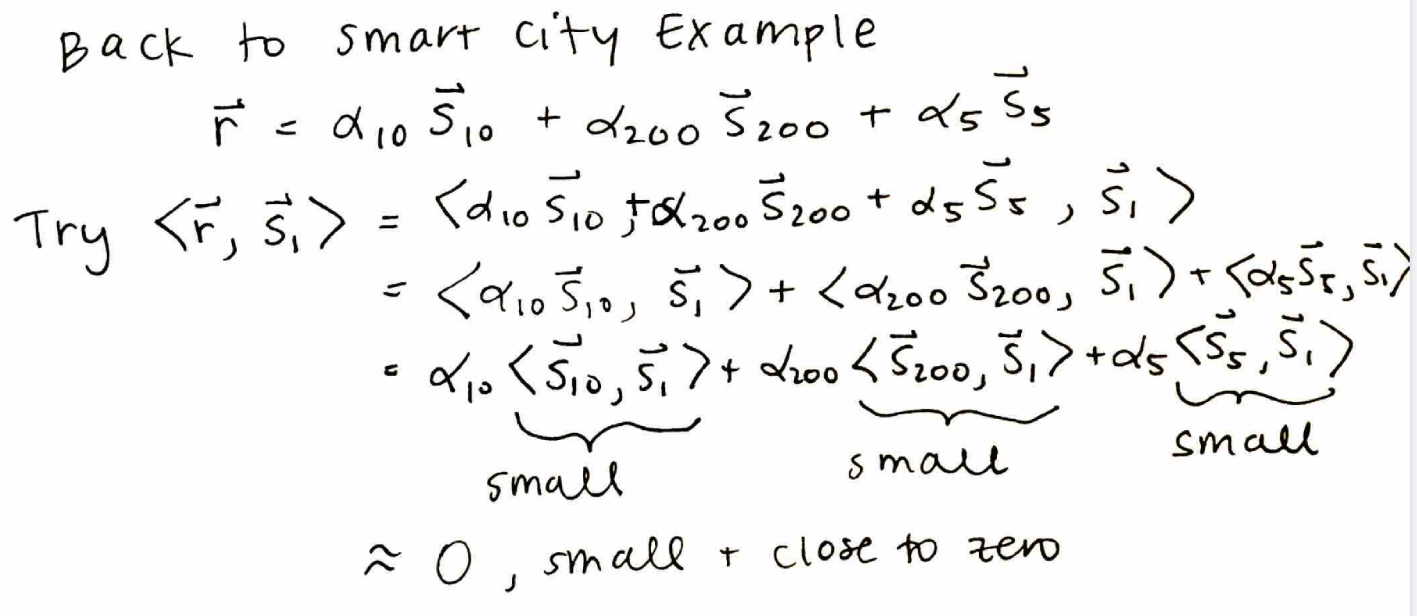 Back to smart city Example
r⃗ = α₁₀ s⃗₁₀ + α₂₀₀ s⃗₂₀₀ + α₅ s⃗₅
Try ⟨r⃗, s⃗₁⟩ = ⟨α₁₀ s⃗₁₀ + α₂₀₀ s⃗₂₀₀ + α₅ s⃗₅, s⃗₁⟩
= ⟨α₁₀ s⃗₁₀, s⃗₁⟩ + ⟨α₂₀₀ s⃗₂₀₀, s⃗₁⟩ + ⟨α₅ s⃗₅, s⃗₁⟩
= α₁₀ ⟨s⃗₁₀, s⃗₁⟩ + α₂₀₀ ⟨s⃗₂₀₀, s⃗₁⟩ + α₅ ⟨s⃗₅, s⃗₁⟩
small small small
≈ 0, small + close to zero